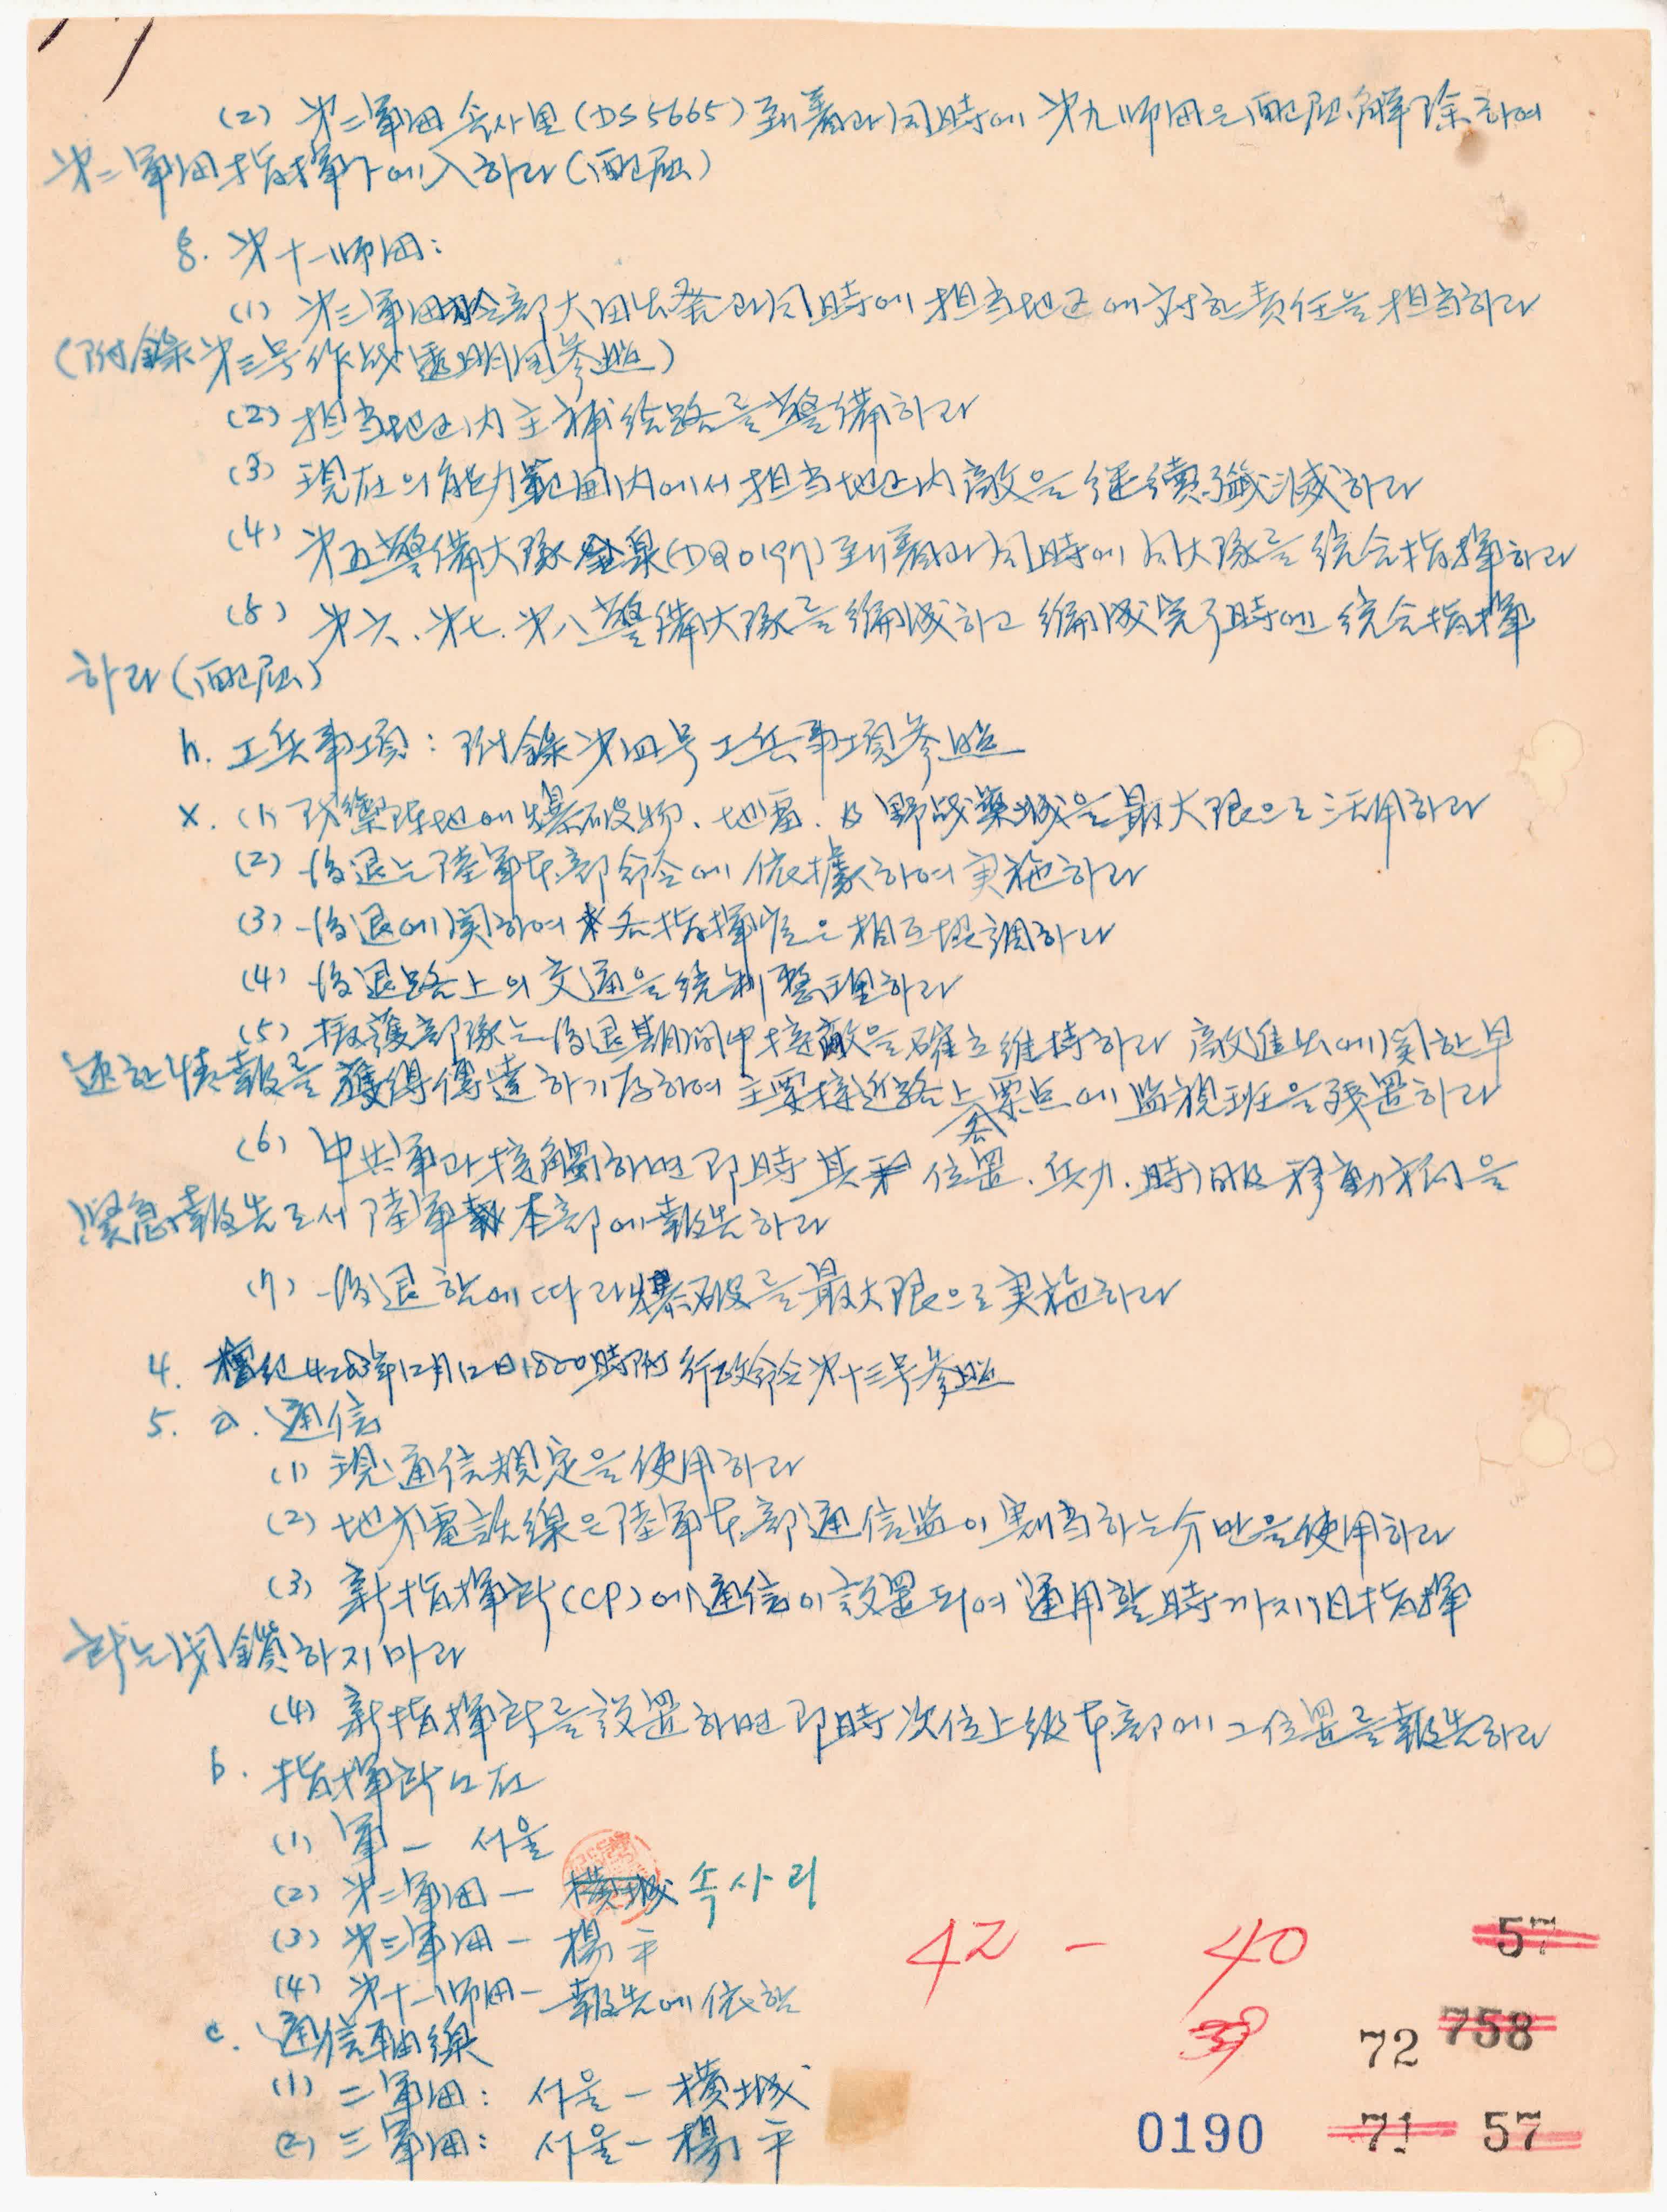 (2) 第二軍団 숙사里(DS5665)到着과 同時에 第九師団은 配屈 解除하여
第二軍団 指揮下에 入하라(配屈)
g. 第十一師団:
(1) 第三軍団 大田出發과 同時에 担当地区에 対한 責任을 担当하라
(附錄 第三号 作战透明図 参照)
(2) 担当地区内 主補給路를 警備하라
(3) 現在의 能力範囲内에서 担当地区内 敵을 继續 殲滅하라
(4) 第五警備大隊 金泉(DQ0197)到着과 同時에 同大隊를 統合指揮하라
(5) 第六、第七、第八警備大隊를 編成하고 編成完了時에 統合指揮
하라(配屈)
h. 工兵事項: 附錄 第四号 工兵事項 参照
x. (1) 防禦陣地에 爆破物、地雷、及 野战築城을 最大限으로 活用하라
(2) 後退는 陸軍本部 命令에 依據하여 実施하라
(3) 後退에 関하여 各指揮官은 相互 協調하라
(4) 後退路上의 交通을 統制 整理하라
(5) 掩護部隊는 後退期間中 接敵을 確立 維持하라 敵進出에 関한 早
速한 情報를 獲得傳達하기 為하여 主要接近路上 各 要点에 监視班을 残置하라
(6) 中共軍과 接觸하면 即時 其 位置、兵力、時間及 移動方向을
緊急報告로서 陸軍 本部에 報告하라
(7) 後退함에 따라 爆破를 最大限으로 実施하라
4. 檀紀 4283年12月12日1800時附 行政命令 第十三号 参照
5. a. 通信
(1) 現通信規定을 使用하라
(2) 地方電話線은 陸軍本部 通信监이 割当하는 分만을 使用하라
(3) 新指揮所(CP)에 通信이 設置되여 運用할 時까지 旧指揮
所는 闭鎖하지 마라
(4) 新指揮所를 設置하면 即時 次位上級本部에 그 位置를 報告하라
b. 指揮所 所在
(1) 軍 — 서울
(2) 第二軍団 — 橫城 속사리
(3) 第三軍団 — 楊平
(4) 第十一師団 — 報告에 依함
c. 通信軸線
(1) 二軍団: 서울 — 橫城
(2) 三軍団: 서울 — 楊平
42 - 40 57
39 72 758
0190 71 57